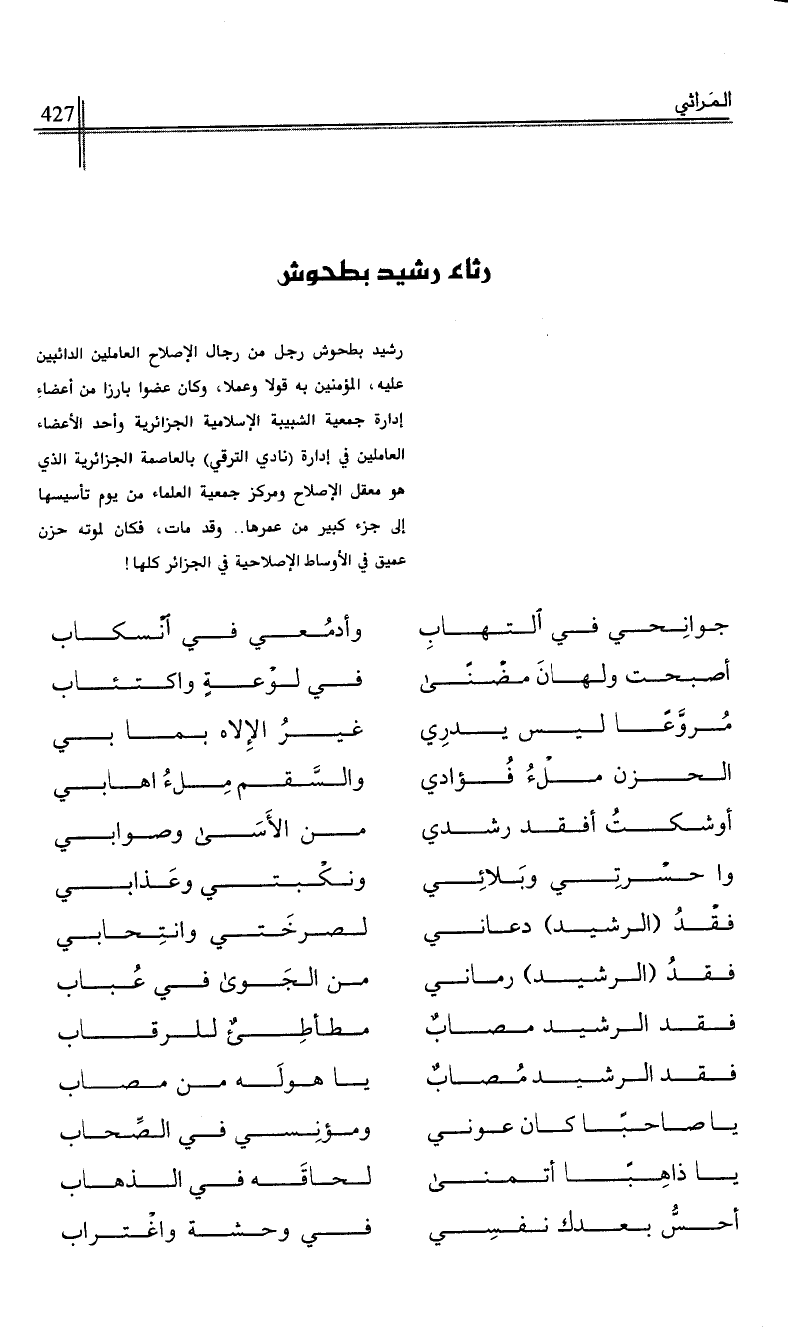 المَراثي
427
رثاء رشيد بطحوش
رشيد بطحوش رجل من رجال الإصلاح العاملين الدائبين
عليه، المؤمنين به قولا وعملا، وكان عضوا بارزا من أعضاء
إدارة جمعية الشبيبة الإسلامية الجزائرية وأحد الأعضاء
العاملين في إدارة (نادي الترقي) بالعاصمة الجزائرية الذي
هو معقل الإصلاح ومركز جمعية العلماء من يوم تأسيسها
إلى جزء كبير من عمرها.. وقد مات، فكان لموته حزن
عميق في الأوساط الإصلاحية في الجزائر كلها!
جوانِحي في ٱلتهابِ وأدمُعي في ٱنْسكاب
أصبحت ولهانَ مضْنًى في لوْعةٍ واكتئاب
مُروَّعًا ليس يدرِي غيرُ الإِلاه بما بي
الحزن ملْءُ فُؤادي والسَّقم مِلءُ اهابي
أوشكتُ أفقد رشدي من الأَسَى وصوابي
وا حسْرتِي وبَلائِي ونكْبتي وعَذابي
فقْدُ (الرشيد) دعاني لصرخَتي وانتِحابي
فقدُ (الرشيد) رماني من الجَوى في عُباب
فقد الرشيد مصابٌ مطأطِئٌ للرقاب
فقد الرشيد مُصابٌ يا هولَه من مصاب
يا صاحبًا كان عوني ومؤنِسي في الصِّحاب
يا ذاهِبًا أتمنى لحاقَه في الذهاب
أحسُّ بعدك نفسِي في وحشة واغْتراب